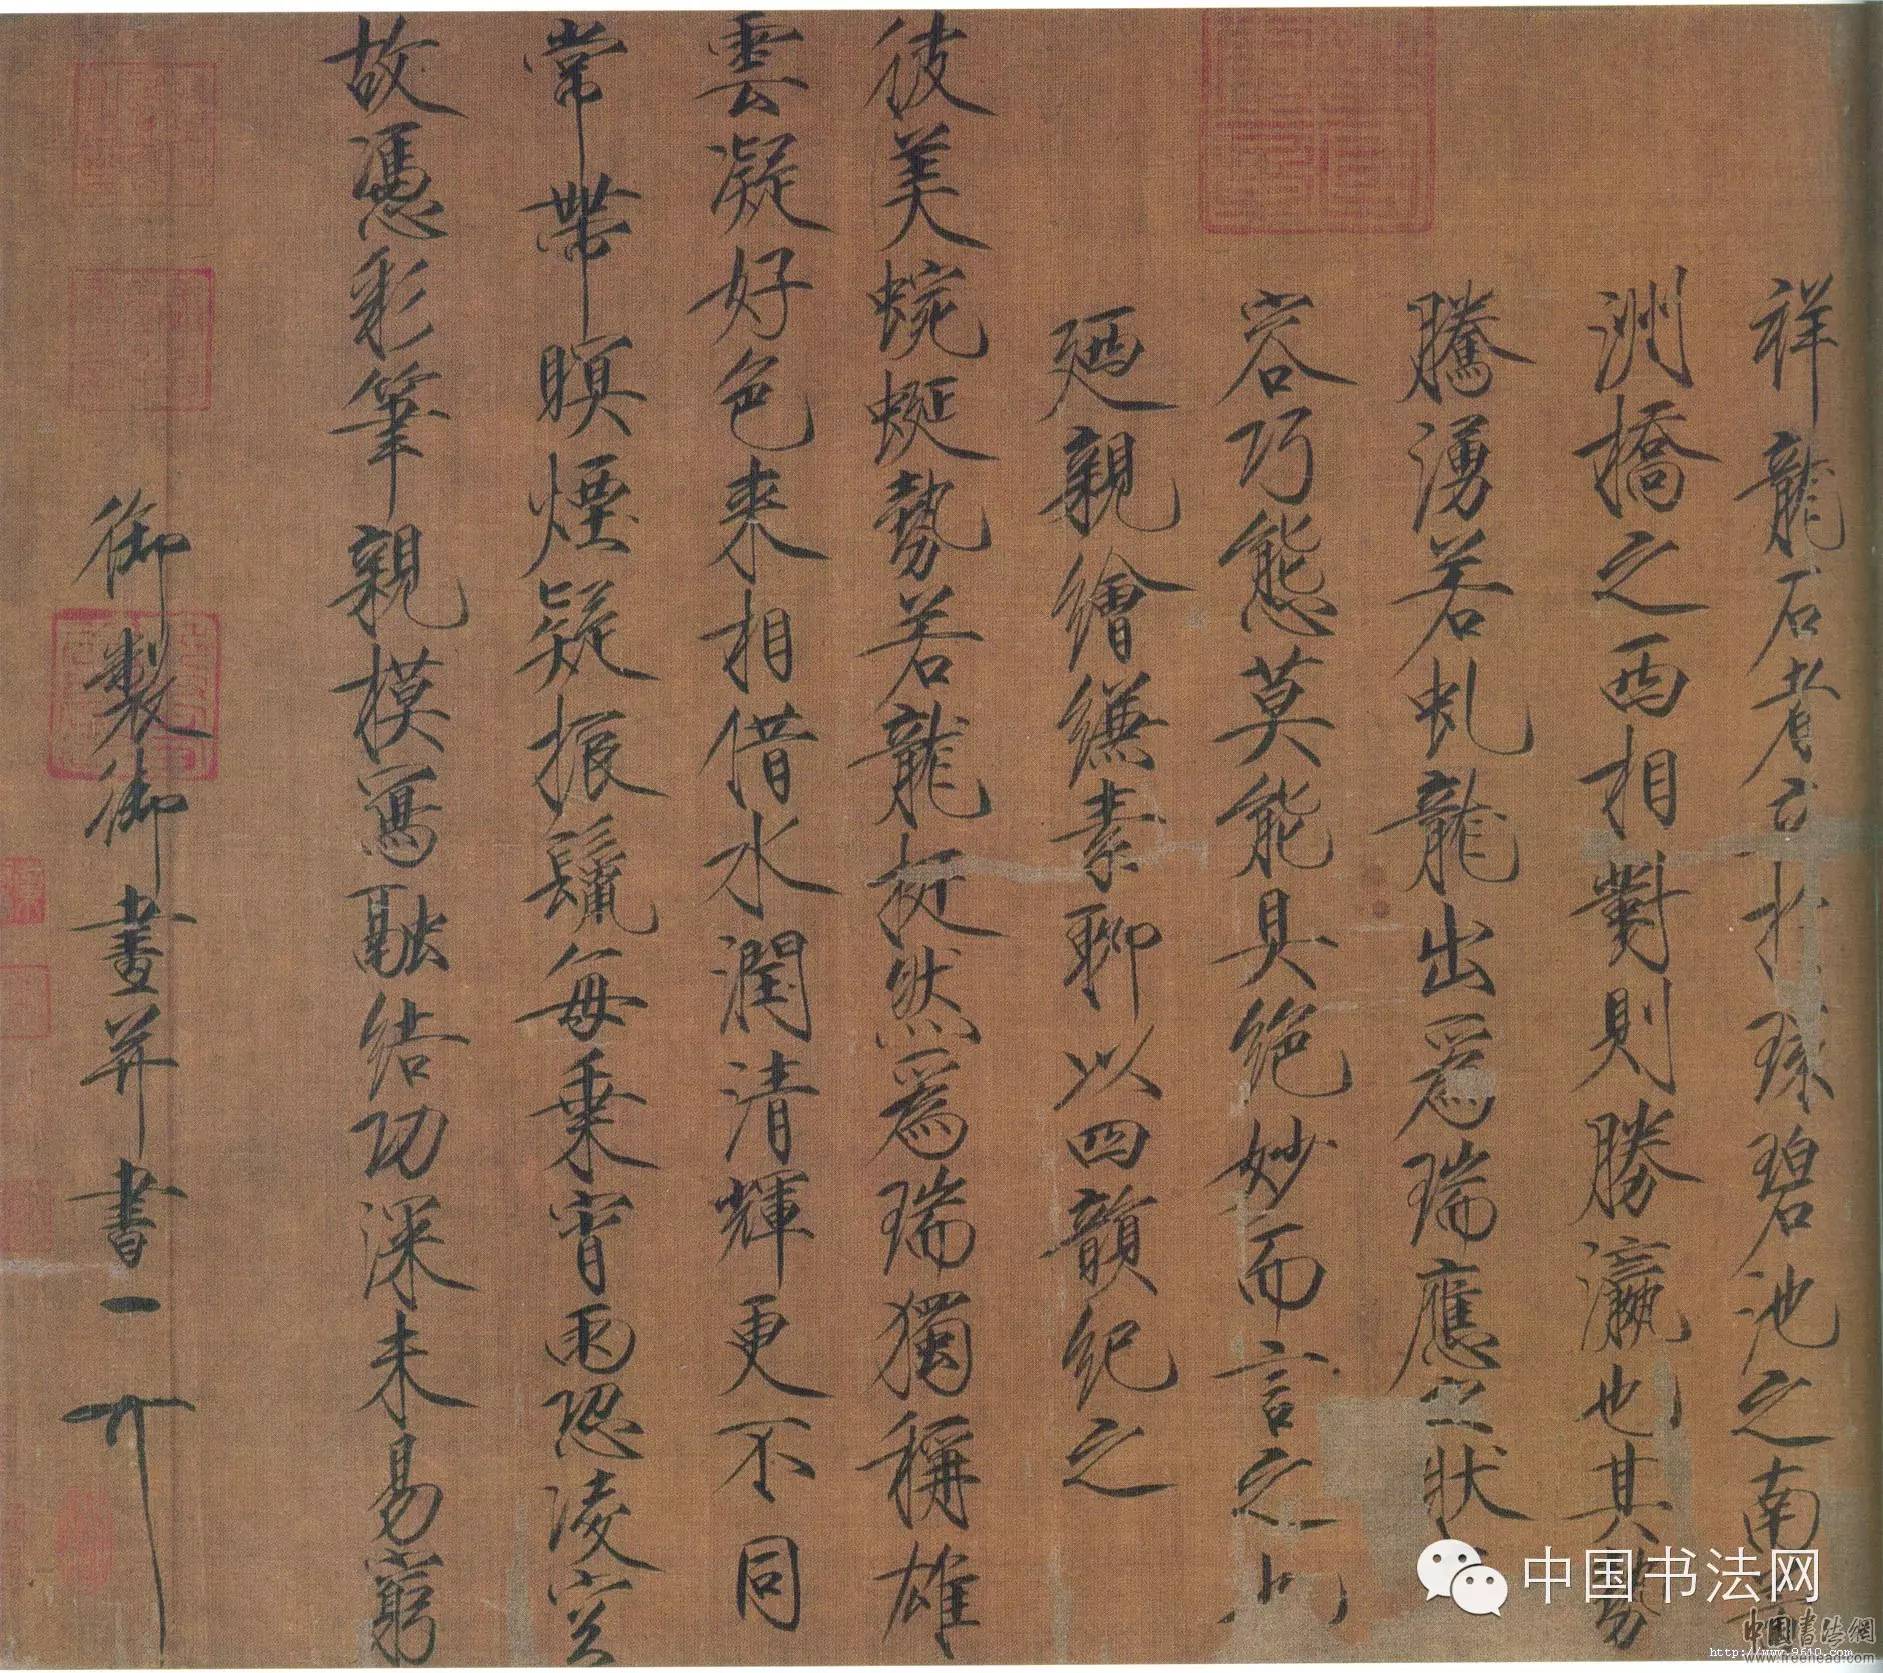 祥龍石者立於環碧池之南芳
洲橋之西相對則勝瀛也其勢
騰湧若虬龍出為瑞應之狀
容巧態莫能具絕妙而言之也
廼親繪縑素聊以四韻紀之
彼美蜿蜒勢若龍挺然為瑞獨稱雄
雲凝好色來相借水潤清輝更不同
常帶暝煙疑振鬣每乘宵雨恐凌空
故憑彩筆親模寫融結功深未易窮
御製御畫并書
中国书法网
中国书法網
http://www.9610.com
www.freehead.com